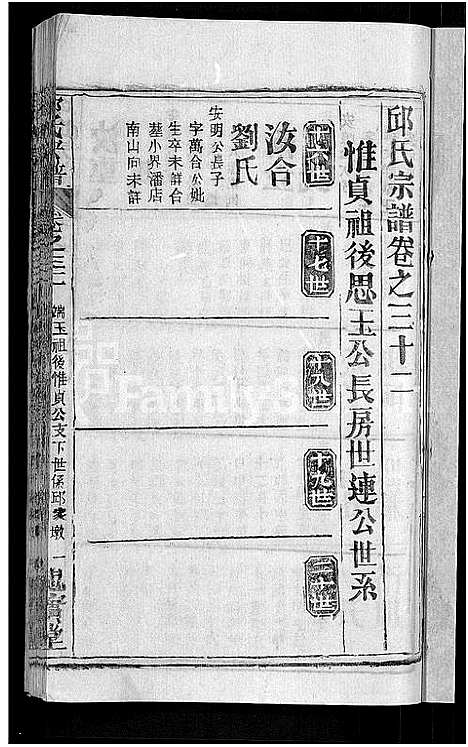 邱氏宗譜卷之三十二
惟貞祖後思玉公長房世連公世系
十六世
十七世
十八世
十九世
二十世
汝合
劉氏
安明公長子
字萬合公妣
生卒未詳合
墓小界潘店
南山向未詳
卷之三十二
端玉祖後惟貞公支下世系邱家墩
一
FamilySearch